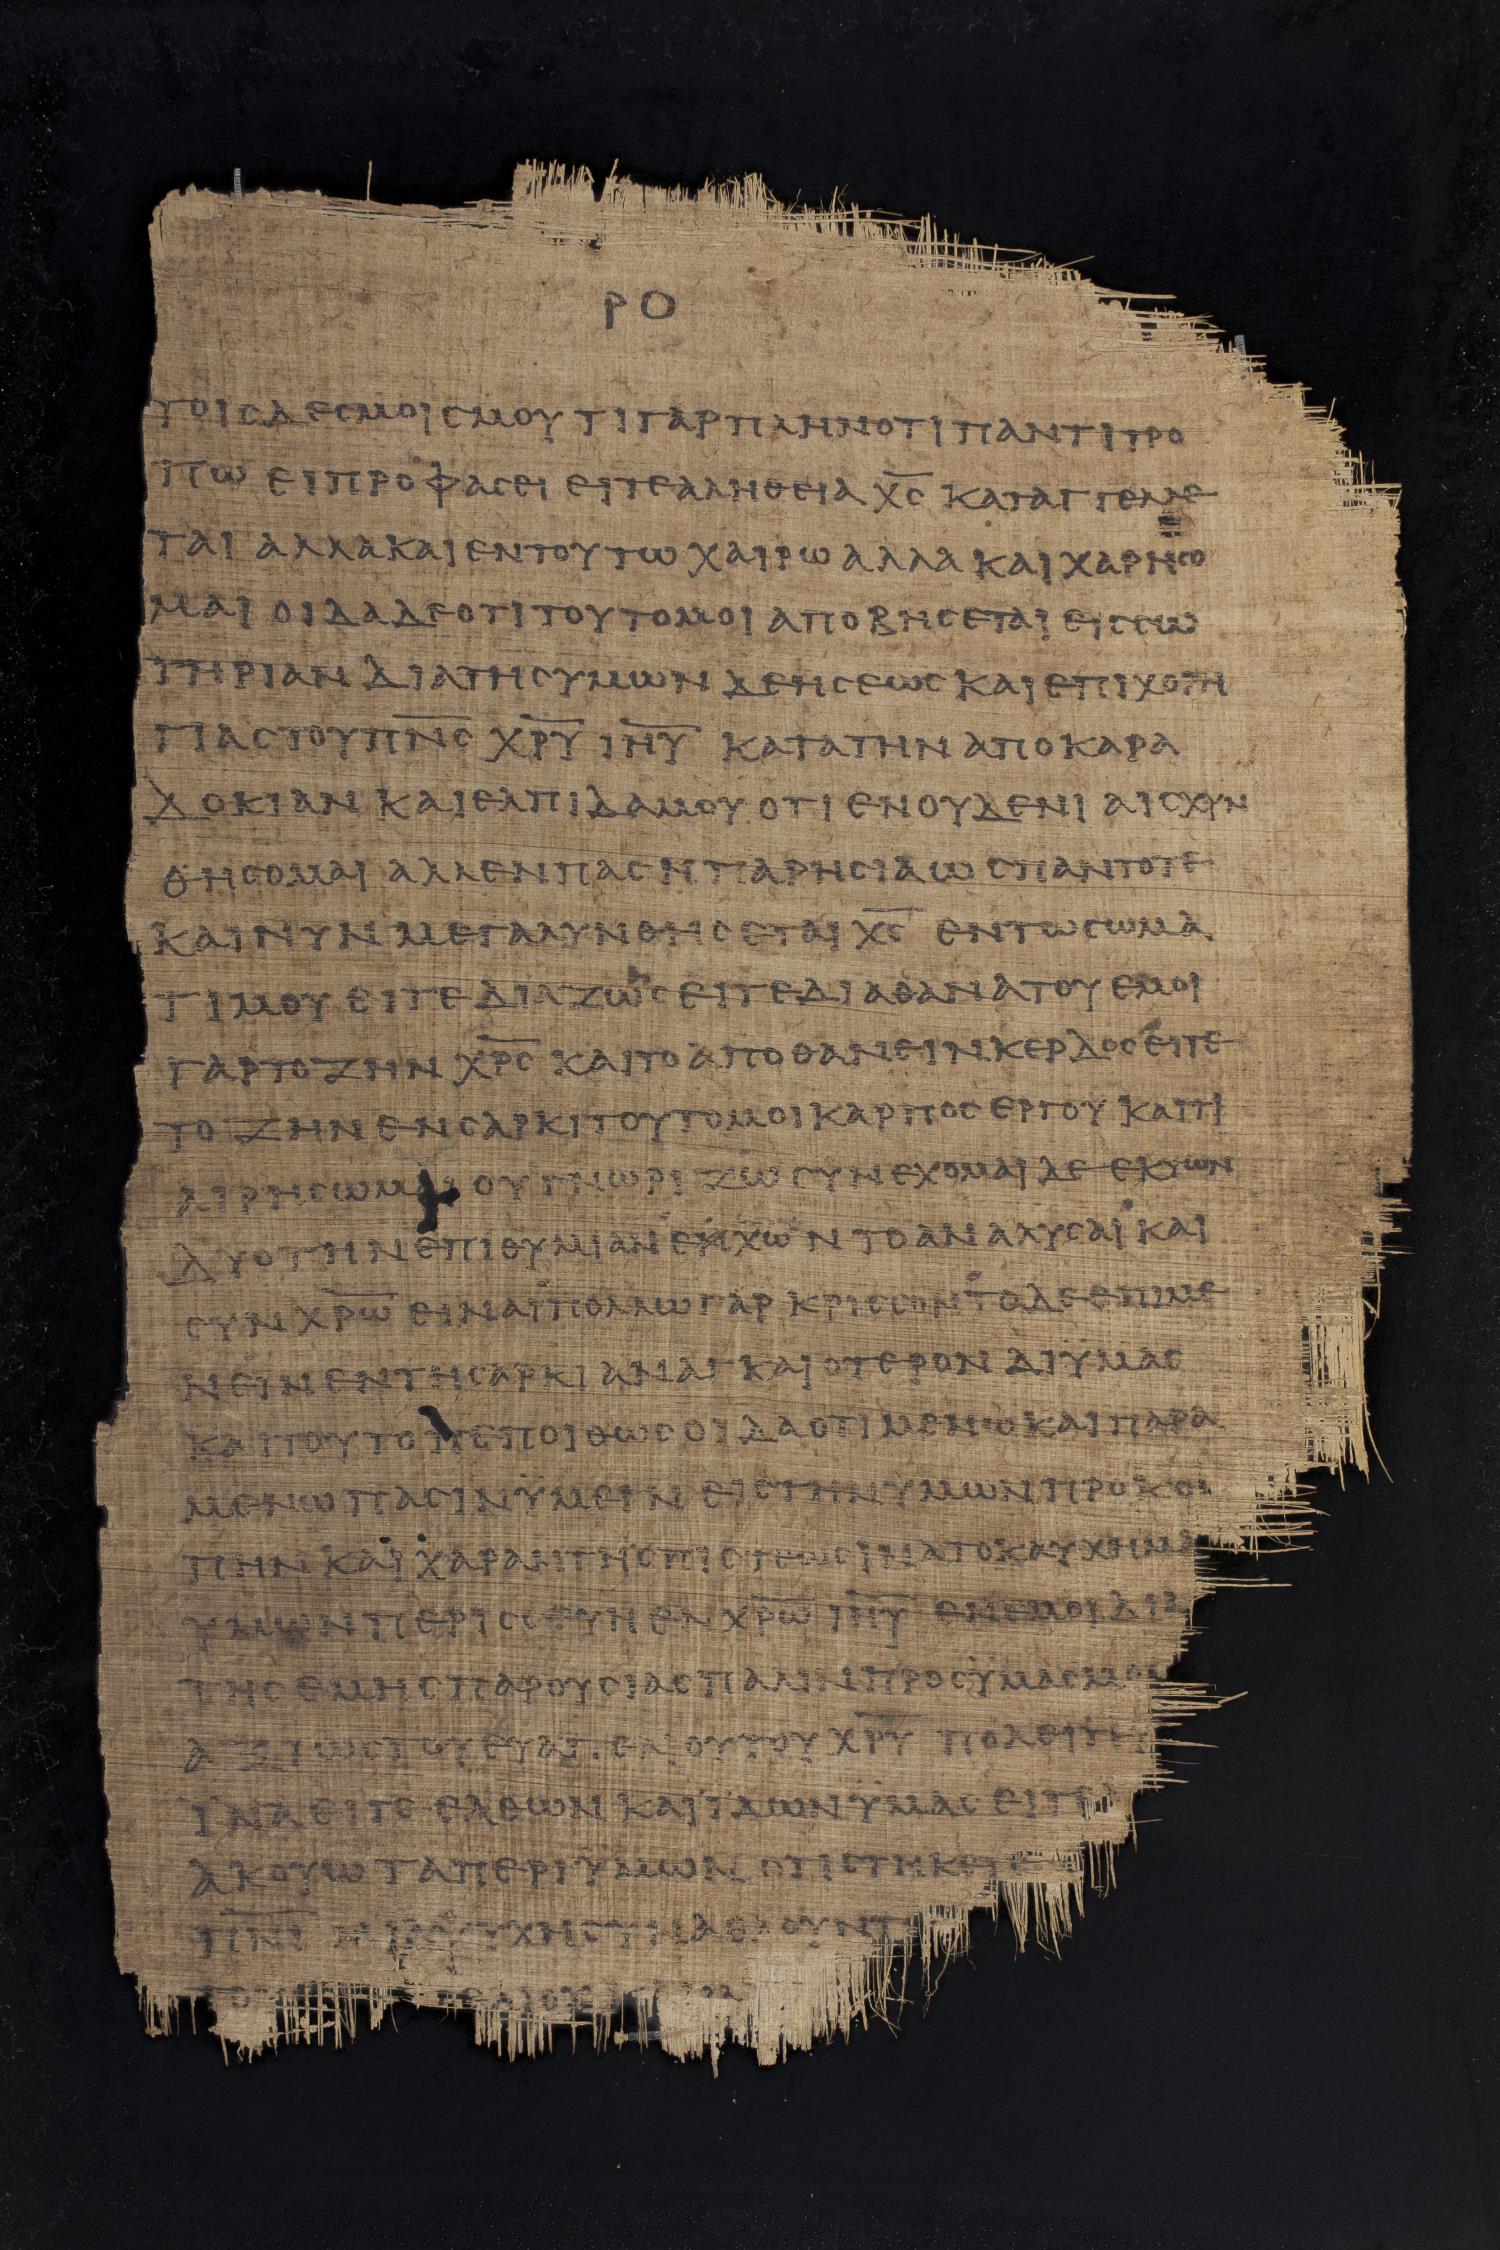 ΡΟ
ΤΟΙϹΔΕϹΜΟΙϹΜΟΥ ΤΙΓΑΡΠΛΗΝΟΤΙΠΑΝΤΙΤΡΟ
ΠΩ ΕΙΠΡΟΦΑϹΕΙ ΕΙΤΕΑΛΗΘΕΙΑ Χ̅Ϲ̅ ΚΑΤΑΓΓΕΛΛΕ
ΤΑΙ ΑΛΛΑΚΑΙΕΝΤΟΥΤΩ ΧΑΙΡΩ ΑΛΛΑ ΚΑΙ ΧΑΡΗϹΟ
ΜΑΙ ΟΙΔΑΔΕΟΤΙΤΟΥΤΟΜΟΙ ΑΠΟΒΗϹΕΤΑΙ ΕΙϹϹΩ
ΤΗΡΙΑΝ ΔΙΑΤΗϹΥΜΩΝ ΔΕΗϹΕΩϹ ΚΑΙ ΕΠΙΧΟΡΗ
ΓΙΑϹΤΟΥΠ̅Ν̅Ϲ̅ Χ̅Ρ̅Υ̅ Ι̅Η̅Υ̅ ΚΑΤΑΤΗΝ ΑΠΟΚΑΡΑ
ΔΟΚΙΑΝ ΚΑΙΕΛΠΙΔΑΜΟΥ ΟΤΙ ΕΝΟΥΔΕΝΙ ΑΙϹΧΥΝ
ΘΗϹΟΜΑΙ ΑΛΛΕΝΠΑϹΗΠΑΡΗϹΙΑΩϹΠΑΝΤΟΤΕ
ΚΑΙΝΥΝ ΜΕΓΑΛΥΝΘΗϹΕΤΑΙ Χ̅Ϲ̅ ΕΝΤΩϹΩΜΑ
ΤΙΜΟΥ ΕΙΤΕ ΔΙΑΖΩηϹΕΙΤΕΔΙΑΘΑΝΑΤΟΥ ΕΜΟΙ
ΓΑΡΤΟΖΗΝ Χ̅Ρ̅Ϲ̅ ΚΑΙΤΟΑΠΟΘΑΝΕΙΝΚΕΡΔΟϹΕΙΤΕ
ΤΟ ΖΗΝ ΕΝϹΑΡΚΙΤΟΥΤΟΜΟΙΚΑΡΠΟϹ ΕΡΓΟΥ ΚΑΙΤΙ
ΑΙΡΗϹΩΜΑΙ ΟΥΓΝΩΡΙΖΩϹΥΝΕΧΟΜΑΙΔΕ ΕΚΤΩΝ
ΔΥΟΤΗΝΕΠΙΘΥΜΙΑΝ ΕΧΩΝ ΤΟΑΝΑΛΥϹΑΙ ΚΑΙ
ϹΥΝΧ̅Ρ̅Ω̅ ΕΙΝΑΙΠΟΛΛΩΓΑΡ ΚΡΙϹϹΟΝΤΟΔΕΕΠΙΜΕ
ΝΕΙΝΕΝΤΗϹΑΡΚΙ ΑΝΑΓΚΑΙΟΤΕΡΟΝ ΔΙΫΜΑϹ
ΚΑΙΤΟΥΤΟ ΠΕΠΟΙΘΩϹΟΙΔΑΟΤΙΜΕΝΩΚΑΙΠΑΡΑ
ΜΕΝΩΠΑϹΙΝΫΜΕΙΝ ΕΙϹΤΗΝΥΜΩΝΠΡΟΚΟ
ΠΗΝ ΚΑΙ ΧΑΡΑΝΤΗϹΠΙϹΤΕΩϹΙΝΑΤΟΚΑΥΧΗΜΑ
ΥΜΩΝΠΕΡΙϹϹΕΥΗΕΝΧ̅Ρ̅Ω̅ Ι̅Η̅Υ̅ ΕΝΕΜΟΙΔΙΑ
ΤΗϹΕΜΗϹΠΑΡΟΥϹΙΑϹΠΑΛΙΝΠΡΟϹΫΜΑϹΜΟΝ
ΑΞΙΩϹΤΟΥΕΥΑΓΓΕΛΙΟΥΤΟΥΧ̅Ρ̅Υ̅ ΠΟΛΕΙΤΕΥ
ΪΝΑΕΙΤΕ ΕΛΘΩΝ ΚΑΙΪΔΩΝΫΜΑϹ ΕΙΤΕ
ΑΚΟΥΩΤΑΠΕΡΙΫΜΩΝ ΟΤΙϹΤΗΚΕΤΕ
Π̅Ν̅Ι̅ ΜΙΑΨΥΧΗϹΥΝΑΘΛΟΥΝΤ